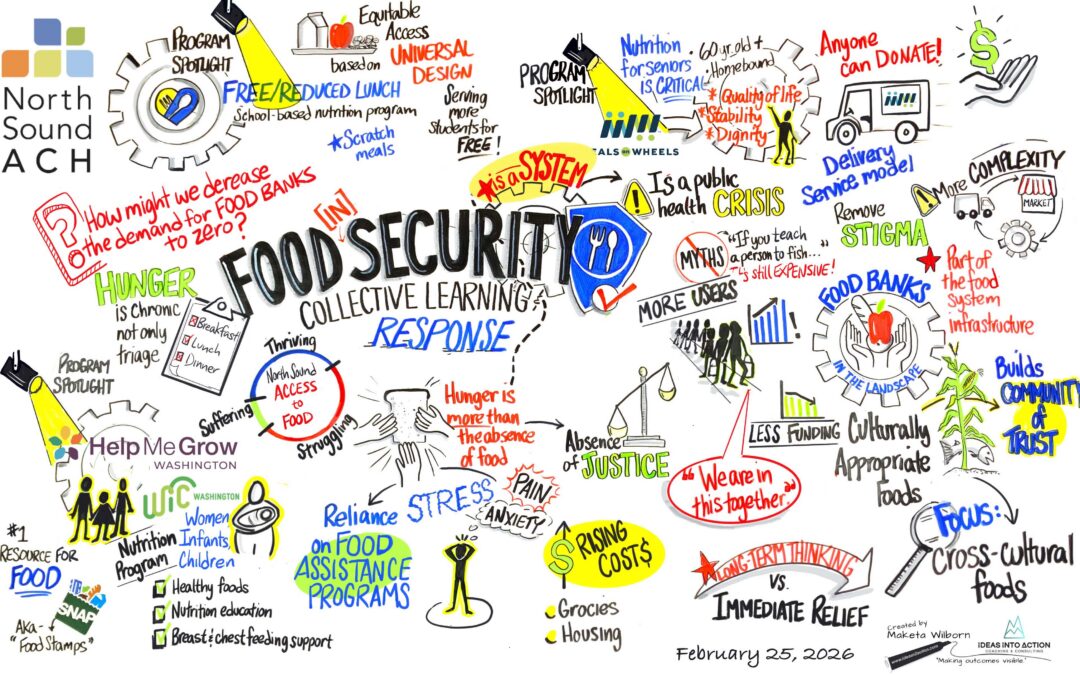 North
Sound
ACH
PROGRAM
SPOTLIGHT
EQuITABLE
Access
based on
UNIVERSAL
DESIGN
FREE/REDUCED LUNCH
School-based nutrition program
*Scratch
meals
Serving
more
students for
FREE!
PROGRAM
SPOTLIGHT
Nutrition
for seniors
is CRITICAL
60 yr old +
Homebound
* Quality of life
*Stability
* Dignity
EALS ON WHEELS
Anyone
can DONATE!
$
Delivery
Service model
? How might we derease
the demand for FOOD BANKS
to zero?
is a SYSTEM
! Is a public
health CRISIS
! More COMPLEXITY
MARKET
Remove
STIGMA
[IN]
FOOD SECURITY
COLLECTIVE LEARNING
RESPONSE
MYTHS
"If you teach
a person to fish... "
STILL EXPENSIVE!
Part of
the food
system
infrastructure
HUNGER
is chronic
not only
triage
Breakfast
Lunch
Dinner
MORE USERS
!
FOOD BANKS
IN THE LANDSCAPE
Builds
COMMUNITY
of
TRUST
PROGRAM
SPOTLIGHT
Thriving
North Sound
ACCESS
to
FOOD
Suffering
Struggling
Hunger is
more than
the absence
of food
Absence
of JUSTICE
LESS FUNDING
"We are in
this together."
Culturally
Appropriate
Foods
Help Me Grow
WASHINGTON
WIC WASHINGTON
Women
Infants
Children
Nutrition
Program
Healthy foods
Nutrition education
Breast & chest feeding support
#1
RESOURCE FOR
FOOD
SNAP
Aka -
"Food Stamps"
Reliance
on FOOD
ASSISTANCE
PROGRAMS
STRESS
PAIN
ANXIETY
$ RISING
COST$
Grocies
Housing
LONG-TERM THINKING
VS.
IMMEDIATE RELIEF
FOCUS:
Cross-cultural
foods
February 25, 2026
Created by
Maketa Wilborn
IDEAS INTO ACTION
COACHING & CONSULTING
"Making outcomes visible."